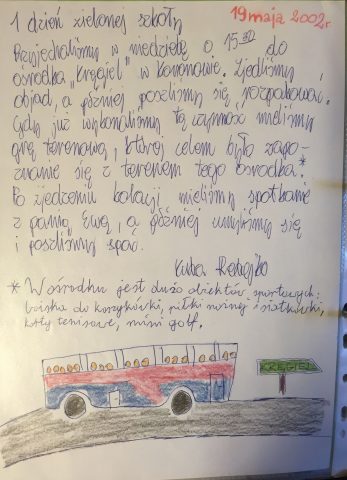 19 maja 2002r
1 dzień zielonej szkoły
Przyjechaliśmy w niedzielę o 15:00 do
ośrodka "Kręgiel" w Kononowie. Zjedliśmy
obiad, a później poszliśmy się rozpakować.
Gdy już wykonaliśmy tą czynność mieliśmy
grę terenową, której celem było zapo-
znanie się z terenem tego ośrodka.*
Po zjedzeniu kolacji mieliśmy spotkanie
z panią Ewą, a później umyliśmy się
i poszliśmy spać.
Kuba
* W ośrodku jest dużo obiektów sportowych:
boiska do koszykówki, piłki nożnej i siatkówki,
korty tenisowe, mini golf.
KRĘGIEL